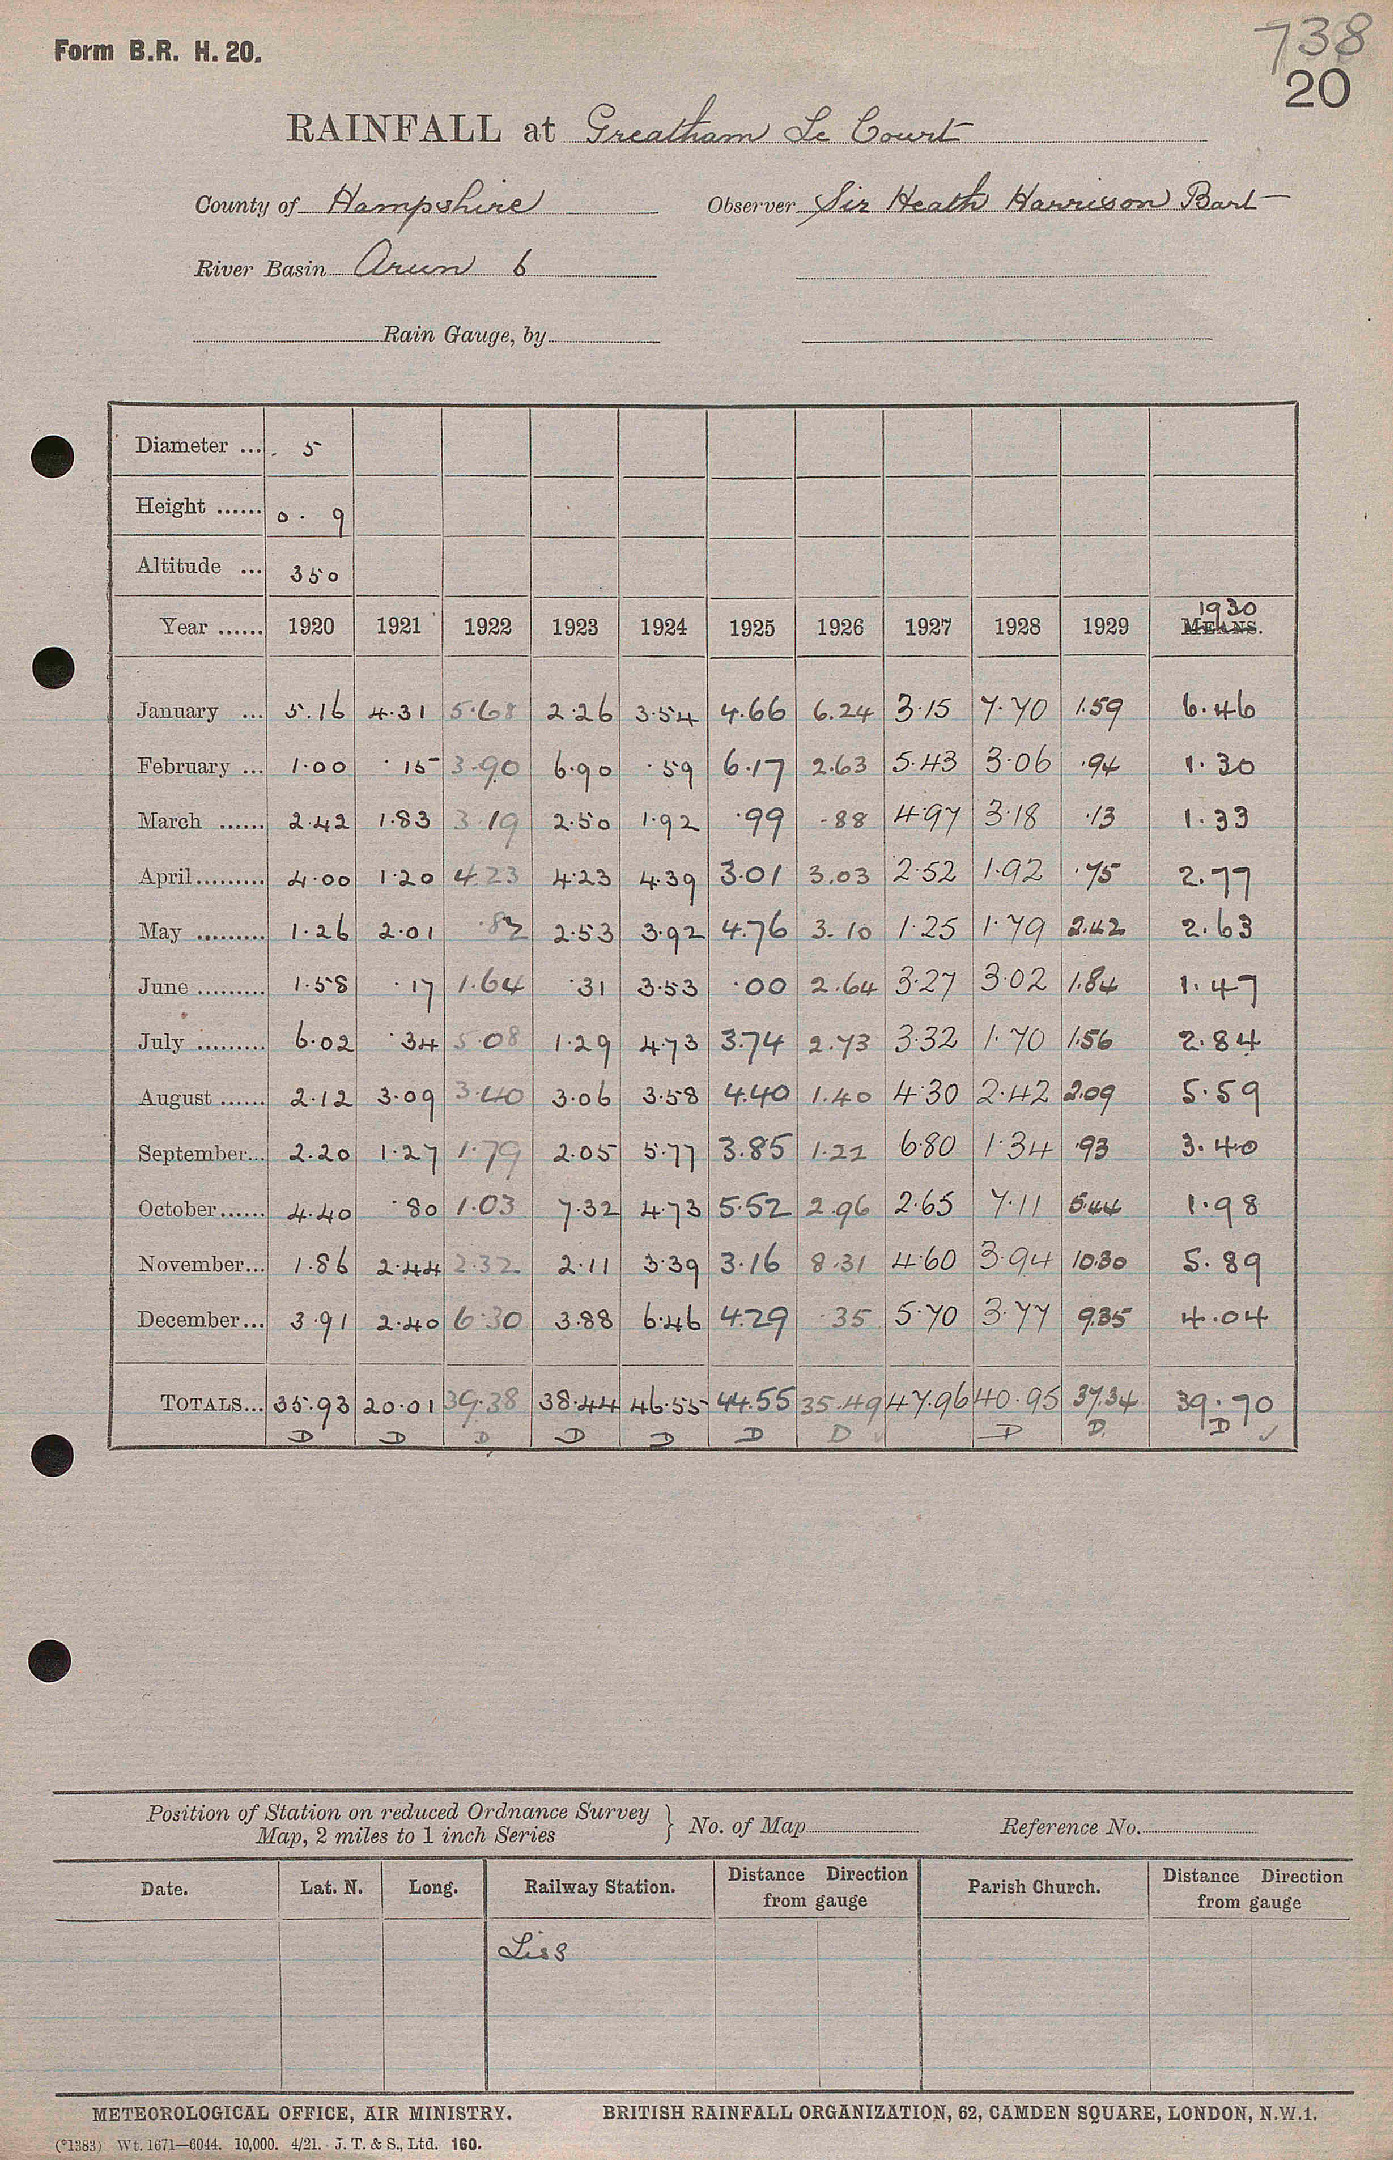 Form B.R. H. 20.
738
20
RAINFALL at Greatham Le Court
County of Hampshire Observer Sir Heath Harrison Bart
River Basin Arun 6
Rain Gauge, by
Diameter ... 5
Height ...... 0. 9
Altitude ... 350
Year ...... 1920 1921 1922 1923 1924 1925 1926 1927 1928 1929 1930 MEANS.
January ... 5.16 4.31 5.68 2.26 3.54 4.66 6.24 3.15 7.70 1.59 6.46
February ... 1.00 .15 3.90 6.90 .59 6.17 2.63 5.43 3.06 .94 1.30
March ...... 2.42 1.83 3.19 2.50 1.92 .99 .88 4.97 3.18 .13 1.33
April......... 4.00 1.20 4.23 4.23 4.39 3.01 3.03 2.52 1.92 .75 2.77
May ......... 1.26 2.01 .82 2.53 3.92 4.76 3.10 1.25 1.79 2.42 2.63
June ......... 1.58 .17 1.64 .31 3.53 .00 2.64 3.27 3.02 1.84 1.47
July ......... 6.02 .34 5.08 1.29 4.73 3.74 2.73 3.32 1.70 1.56 2.84
August ...... 2.12 3.09 3.40 3.06 3.58 4.40 1.40 4.30 2.42 2.09 5.59
September... 2.20 1.27 1.79 2.05 5.77 3.85 1.22 6.80 1.34 .93 3.40
October...... 4.40 .80 1.03 7.32 4.73 5.52 2.96 2.65 7.11 5.44 1.98
November... 1.86 2.44 2.32 2.11 3.39 3.16 8.31 4.60 3.94 10.30 5.89
December... 3.91 2.40 6.30 3.88 6.46 4.29 .35 5.70 3.77 9.35 4.04
TOTALS... 35.93 20.01 39.38 38.44 46.55 44.55 35.49 47.96 40.95 37.34 39.70
D D D D D D D ✓ D D D ✓
Position of Station on reduced Ordnance Survey
Map, 2 miles to 1 inch Series } No. of Map Reference No.
Date. Lat. N. Long. Railway Station. Distance Direction from gauge Parish Church. Distance Direction from gauge
Liss
METEOROLOGICAL OFFICE, AIR MINISTRY. BRITISH RAINFALL ORGANIZATION, 62, CAMDEN SQUARE, LONDON, N.W.1.
(*1383) Wt. 1671—6044. 10,000. 4/21. J. T. & S., Ltd. 160.